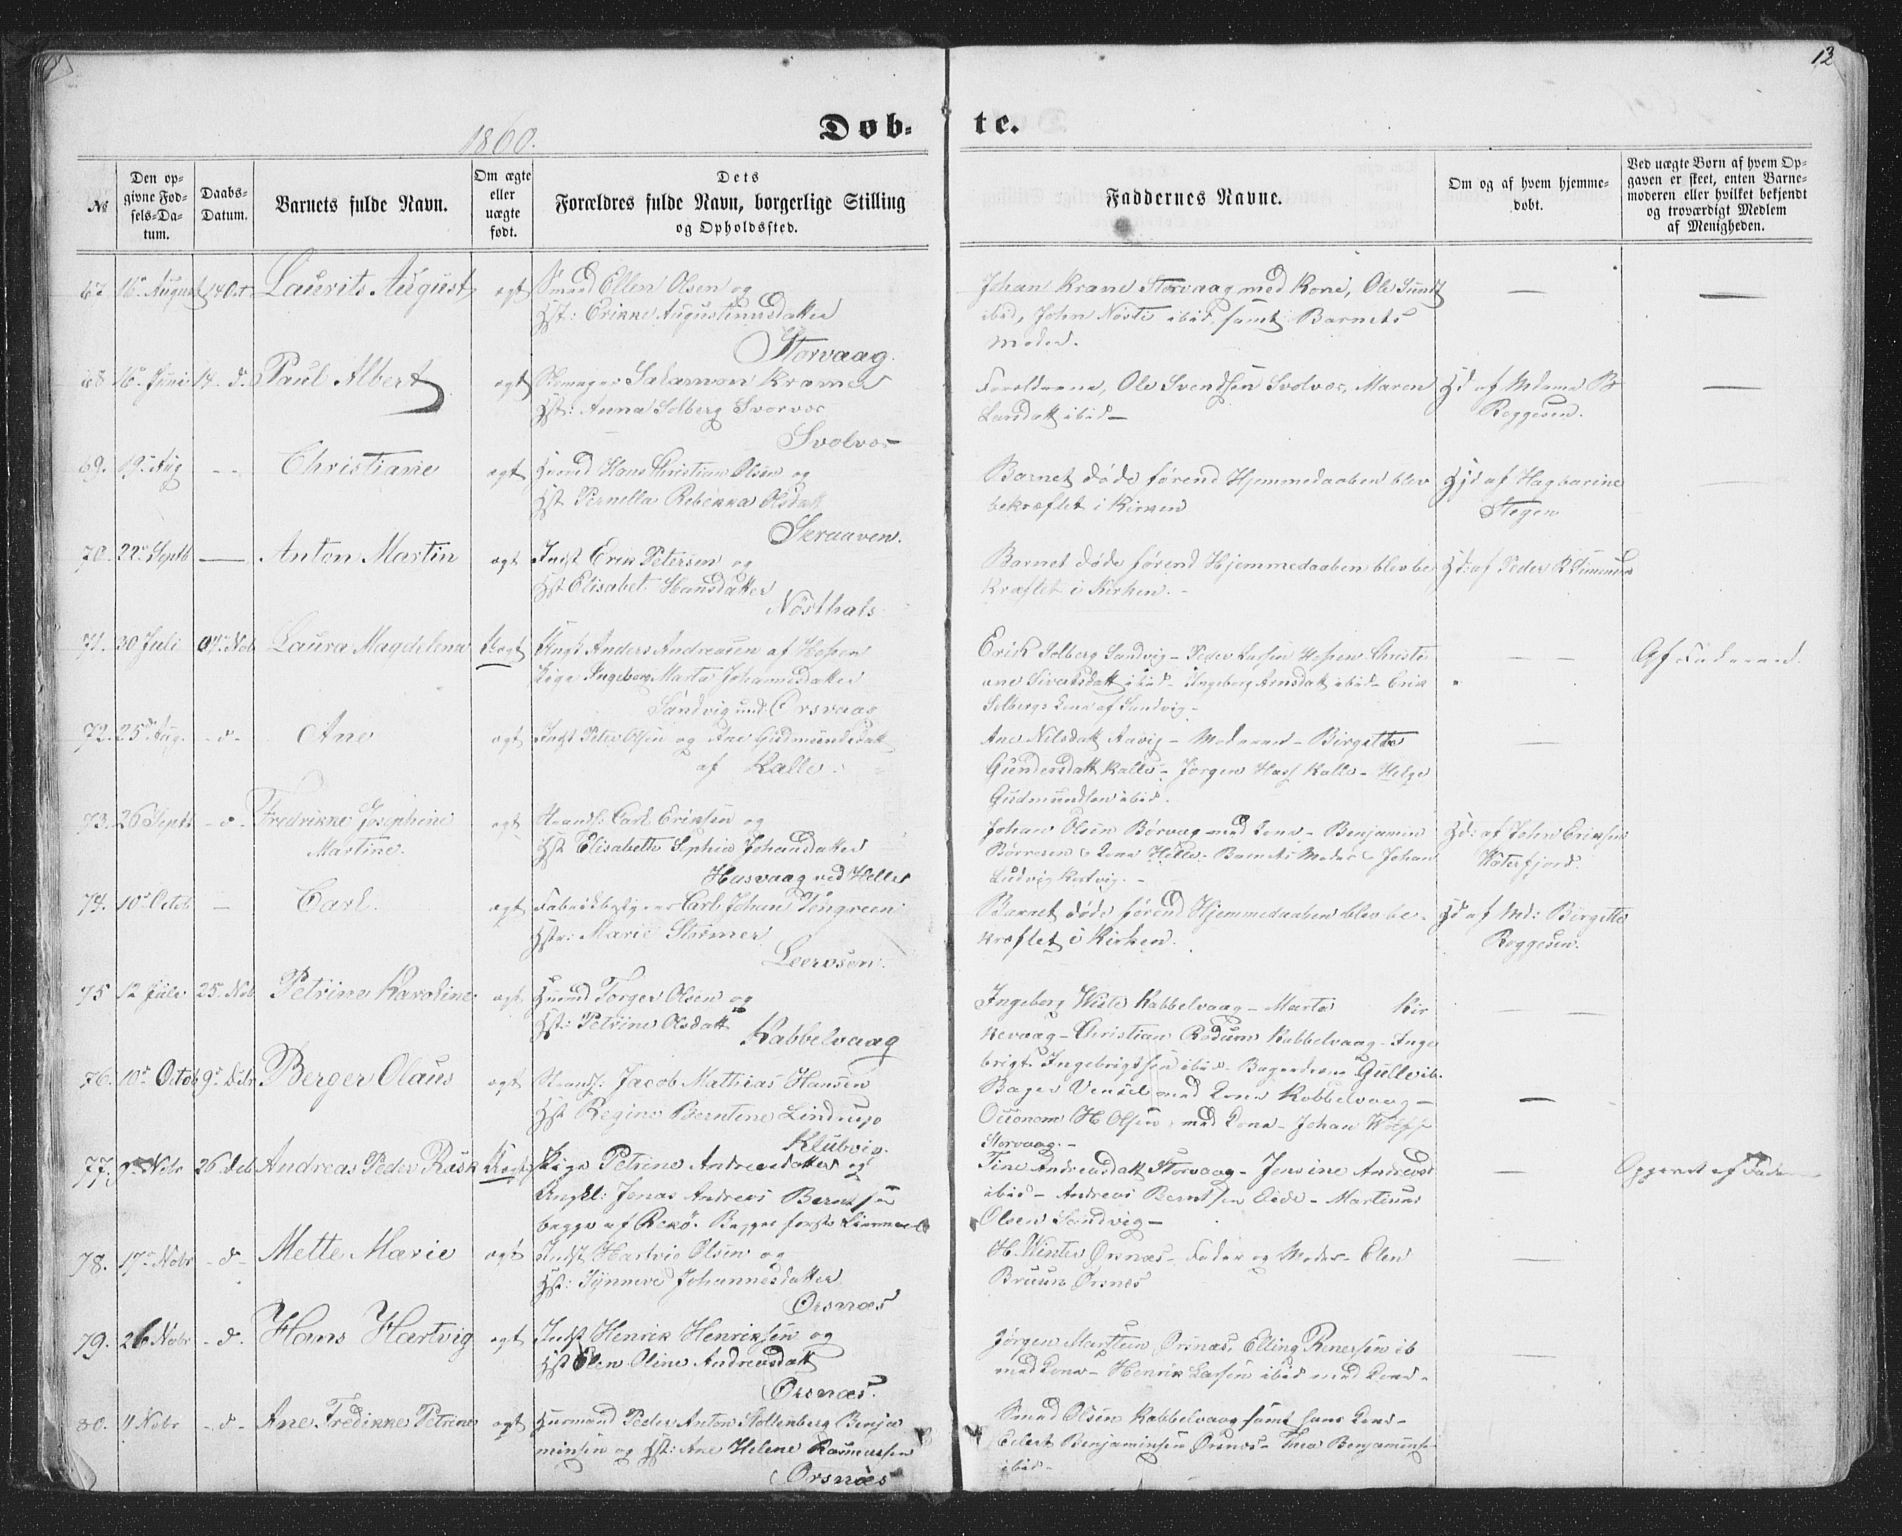 12
1860.
Døb- te.
№
Den op-
givne Fød-
sels-Da-
tum.
Daabs-
Datum.
Barnets fulde Navn.
Om ægte
eller
uægte
født.
Dets
Forældres fulde Navn, borgerlige Stilling
og Opholdssted.
Faddernes Navne.
Om og af hvem hjemme-
døbt.
Ved uægte Børn af hvem Op-
gaven er skeet, enten Barne-
moderen eller hvilket bekjendt
og troværdigt Medlem
af Menigheden.
67. 16 August 14 Oct Laurits August ægt Ellen Olsen og
Hst: Erikke Augustinusdatter
Storvaag.
Johan Krane Storvaag med Kone, Ole Sund
ibid, John Nøste ibid, samt Barnets
Moder.
68 16 Juni 14. d. Paul Albert ægt Salamon Kramer
Hst: Anna Solberg
Svolvær
Forældrene, Ole Svendsen Svolvær, Maren
Larsdatt ibid
Hd af Mdme B
Roggesen.
69. 19 Aug Christiane ægt Huusmd Hans Christian Olsen og
Hst Pernella Rebekka Olsdatt
Skraaven.
Barnet døde førend Hjemmedaaben blev
bekræftet i Kirken
Hjd af Hagbarine
Stegen
70. 22 Septb Anton Martin ægt Indst Erik Petersen og
Hst Elisabet Hansdatter
Nösthals
Barnet døde førend Hjemmedaaben blev be
kræftet i Kirken.
Hd: af Peder
71. 30 Juli 04 Nob Laura Magdelena Uægt Ungk Anders Andreasen af Hopen
Pige Ingeborg Marta Johannesdatter
Sandvig Ørsvaag
Erik Solberg Sandvig - Peder Larsen Hopen Christi
ane Sivertsdatt ibid - Ingeborg Arnsdatt ibid - Erik
Solbergs Kone af Sandvig -
Af Faderen.
72. 25 Aug. - d - Ane ægt Indst Peter Olsen og Ane Gudmundsdatt
af Kalle.
Ane Nilsdatt Aavig - Moderen - Birgitte
Gundersdatt Kalle - Jørgen Hass Kalle - Helge
Gudmundsen ibid.
73. 26 Septb - d - Fredrikke Josephine
Martine.
ægt Carl Eriksen og
Hst Elisabeth Sophie Johansdatter
Husvaag ved Helle
Johan Olsen Børvaag med Kone - Benjamin
Børresen & Kone Helle - Barnets Moder & Johan
Ludvig
Hd: af John Eriksen
Waterfjord
74. 10 Octob Carl ægt Carl Johan Tengreen
Hstr: Marie Størmer
Leervosen.
Barnet døde førend Hjemmedaaben blev be-
kræftet i Kirken.
Hd af Md: Birgitte
Roggesen.
75 12 Juli 25. Nob Petrine Karoline ægt Huusmd Torger Olsen og
Hst: Petrine Olsdatt
Kabbelvaag
Ingeborg Kabbelvaag - Marta Kir
kevaag - Christian Rødum Kabbelvaag - Inge
brigt Ingebrigtsen ibid - Gullvik
76. 10 Octob 9 Debr Berger Olaus ægt Jacob Mathias Hansen
Hst Regine Berntine Lindrup
Klubvig.
Bager Vensel med Kone Kabbelvaag -
Oeconom H Olsen med Kone - Johan
Storvaag. -
77. 9 Nobr 26 Deb Andreas Peder Rask Uægt Pige Petrine Andreasdatter og
Ungkl: Jonas Andreas Berntsen
begge af Rekø. Begges første
Tine Andreasdatt Storvaag - Jensine Andreasd
ibid - Andreas Berntsen Eide - Martinus
Olsen Sandvig -
Opgivet af Faderen
78. 17 Nobr - d - Mette Marie ægt Indst Hartvig Olsen og
Hst: Synneve Johannesdatter
Ørsnæs
H. Winter Ørsnæs - Fader og Moder - Elen
Bruun Ørsnes
79. 26 Nobr - d. Hans Hartvig ægt Indst Henrik Henriksen og
Hst Elen Oline Andreasdatt
Ørsnæs.
Jörgen Ørsnæs, Elling Renersen ib
med Kone - Henrik Larsen ibid med Kone -
80. 11 Nobr - d - Ane Fredikke Petrine ægt Huusmand Peder Anton Stoltenberg Benja
minsen og Hst: Ane Helene Rasmussen
Ørsnæs
Olsen Kabbelvaag samt hans Kone -
Eilert Benjaminsen Ørsnæs - Thea Benjaminsen
ibid -